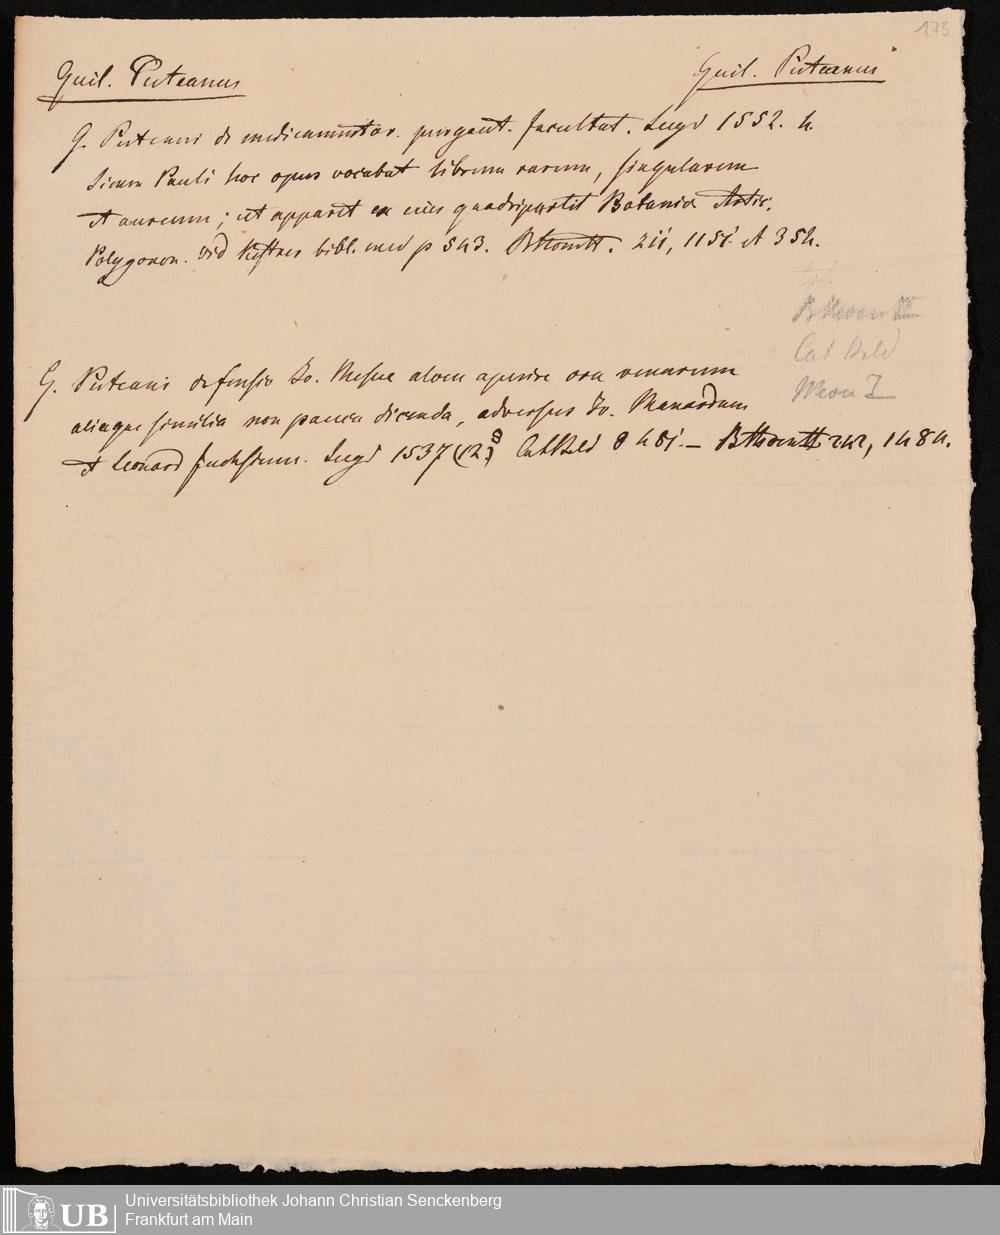 173
Guil. Puteanus
Guil. Puteanus
G. Puteani de medicamentor. purgant. facultat. Lugd 1552. 4.
Simon Pauli hoc opus vocabat librum rarum, singularem
et aureum; ut apparet ex eius quadripartit Botanic Artic.
Polygonon. vid Kestner bibl. med p 543. 211, 1151. et 354.
Cat Bald
G. Puteani defensio Jo. Mesue aloen aperire ora venarum
aliaque similia non pauca dicenda, adversus Jo. Manardum
et Leonard Fuchsium. Lugd 1537 (12.) 8 Cat Bald 8 481. — 242, 1484.
UB
Universitätsbibliothek Johann Christian Senckenberg
Frankfurt am Main